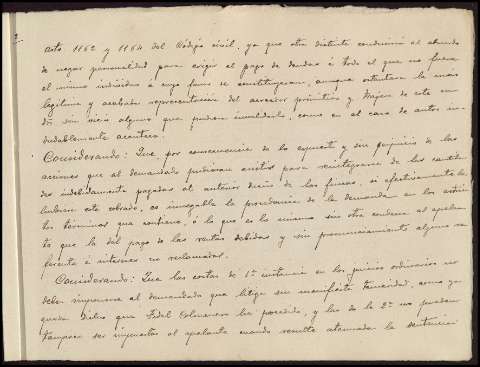 arts 1162 y 1164 del Código civil, ya que otra distinta conduciria al absurdo
de negar personalidad para exigir el pago de deudas á todo el que no fuera
el mismo individuo á cuyo favor se constituyeran, aunque ostentara la mas
legitima y acabada representacion del acreedor primitivo y trajera de este un
sin vicio alguno que pudiera invalidarlo, como en el caso de autos in-
dudablemente acontece.
Considerando: Que por consecuencia de lo expuesto y sin perjuicio de las
acciones que al demandado pudieran asistir para reintegrarse de las cantida-
des indebidamente pagadas al anterior dueño de las fincas, si efectivamente la
hubiera este cobrado, es innegable la procedencia de la demanda en los estric-
tos terminos que contiene, ó lo que es lo mismo sin otra condena al apela-
do que la del pago de las rentas debidas y sin pronunciamiento alguno re-
ferente á intereses no reclamados.
Considerando: Que las costas de 1ª instancia en los juicios ordinarios no
deben imponerse al demandado que litiga sin manifiesta temeridad, como ya
queda dicho que Fidel Colmenero ha procedido, y las de la 2ª no pueden
tampoco ser impuestas al apelante cuando resulta atenuada la sentencia